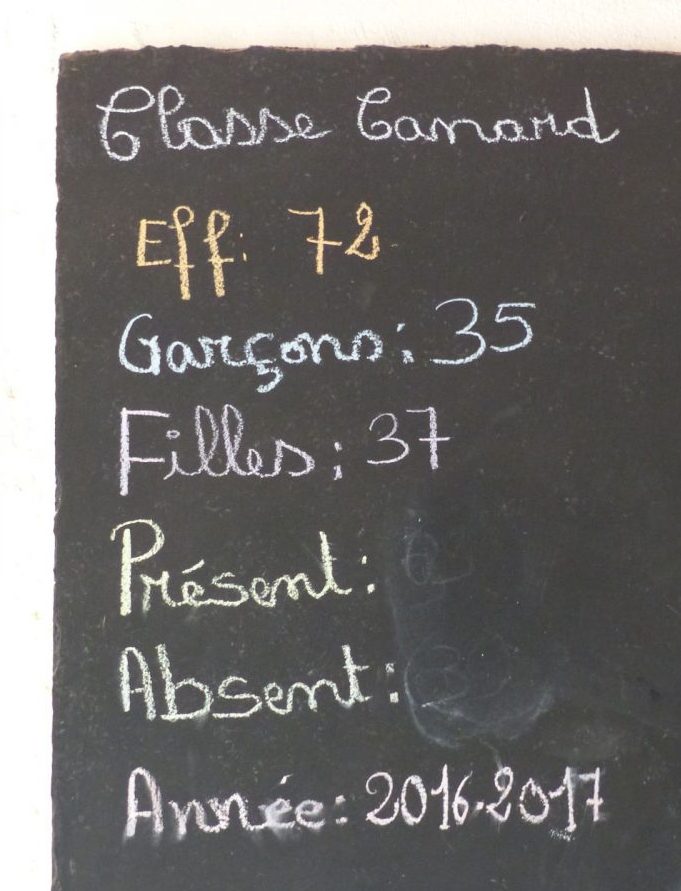 Classe Canard
Eff: 72
Garçons: 35
Filles: 37
Présent:
Absent:
Année: 2016-2017